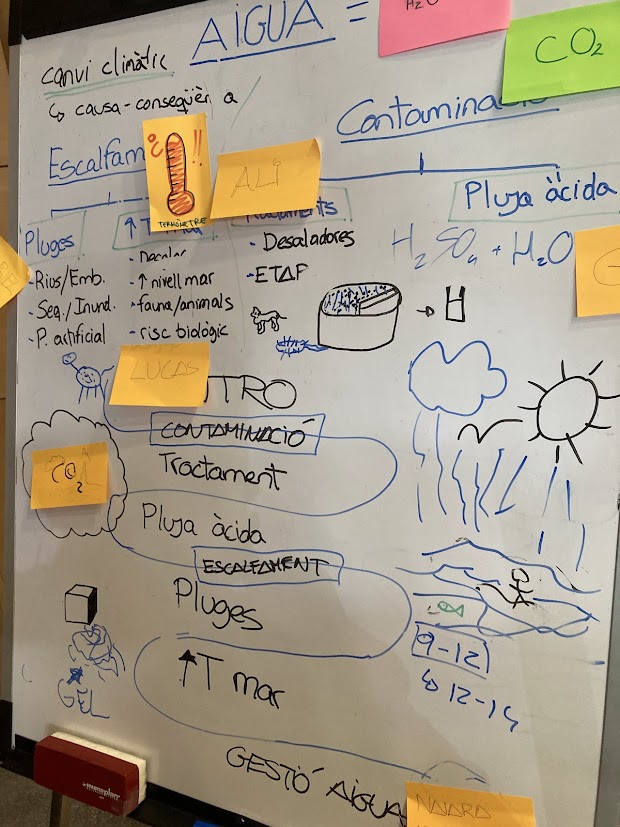 AIGUA =
H₂O
CO₂
canvi climàtic
↳ causa-conseqüèn a
Contaminació
Escalfam
¿
!!
TERMÒMETRE
ALI
Pluja àcida
Pluges
- Rius/Emb.
- Seq./Inund.
- P. artificial
↑ T
- ↑ nivell mar
- fauna/animals
- risc biològic
- Desaladores
- ETAP
H₂SO₄ + H₂O
G
LUCAS
TRO
CONTAMINACIÓ
Tractament
CO₂
Pluja àcida
ESCALFAMENT
Pluges
↑T mar
GEL
9-12
↳ 12-14
GESTIÓ AIGUA
NAIARA